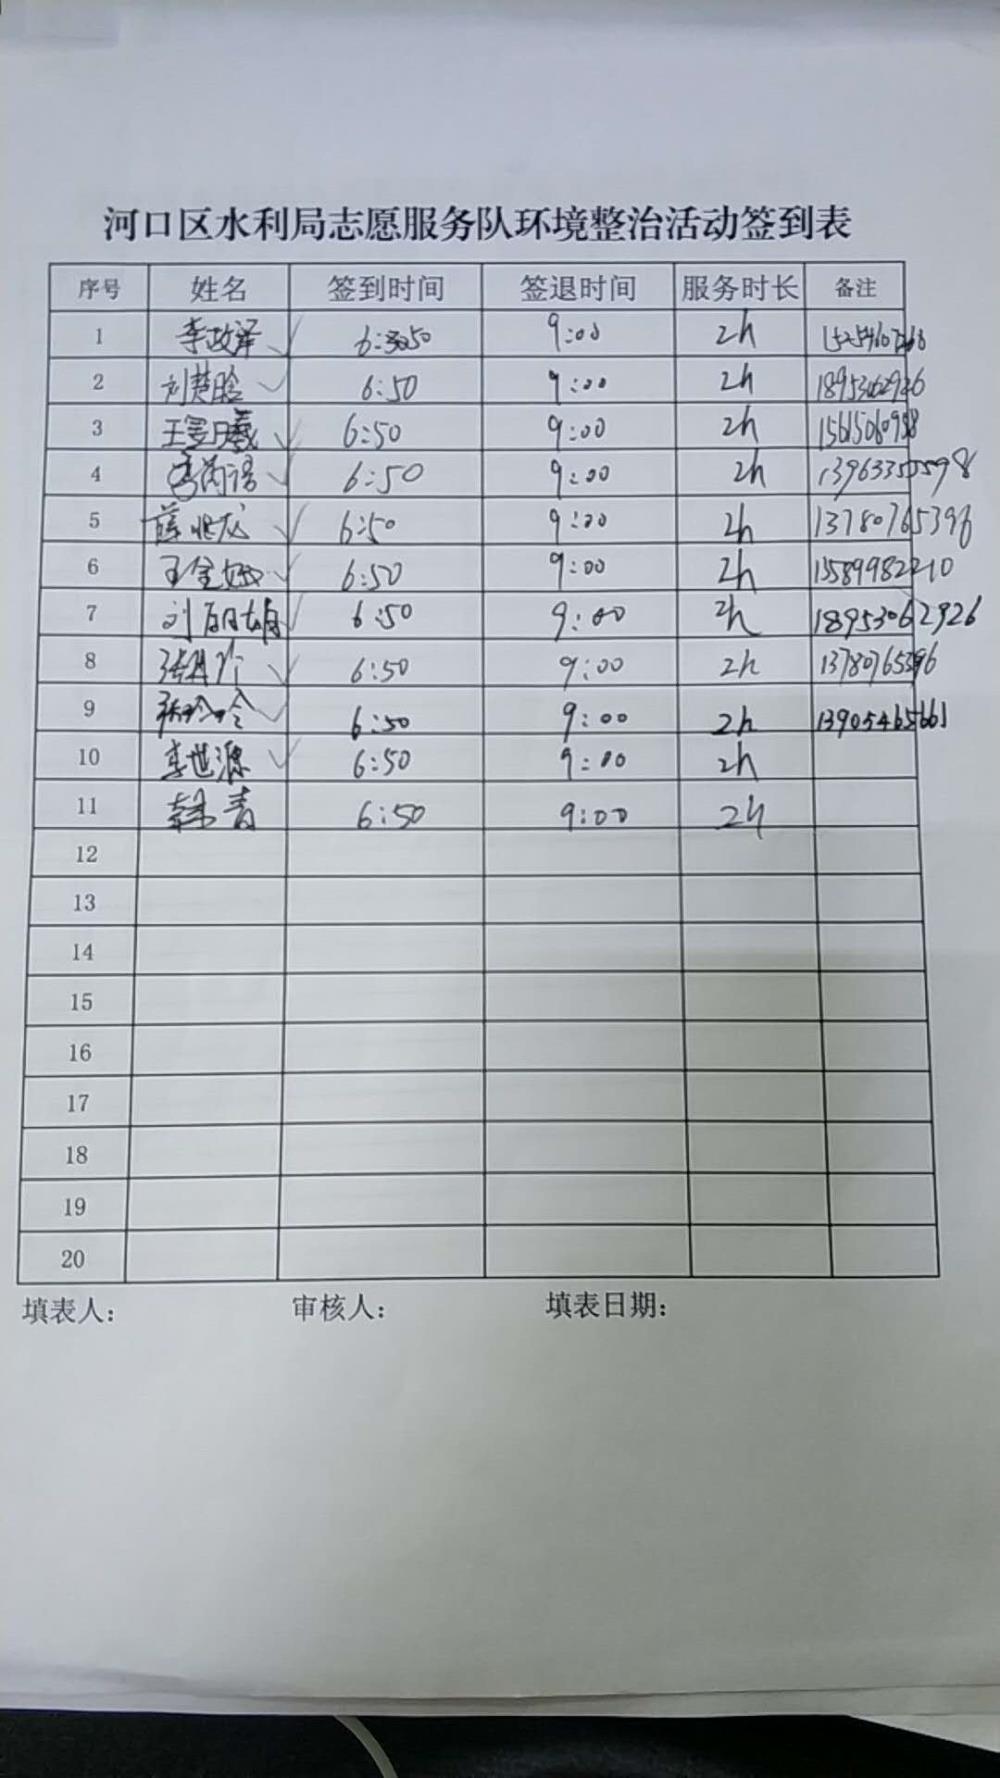 河口区水利局志愿服务队环境整治活动签到表
序号 姓名 签到时间 签退时间 服务时长 备注
1 李政泽 6:50 9:00 2h
2 刘楚晗 6:50 9:00 2h 18953062926
3 6:50 9:00 2h
4 6:50 9:00 2h 13963355598
5 薛兆龙 6:50 9:00 2h 13780765396
6 6:50 9:00 2h 15589982210
7 6:50 9:00 2h 18953062926
8 6:50 9:00 2h 13780765396
9 6:50 9:00 2h 13905465661
10 李世源 6:50 9:00 2h
11 韩青 6:50 9:00 2h
12
13
14
15
16
17
18
19
20
填表人： 审核人： 填表日期：